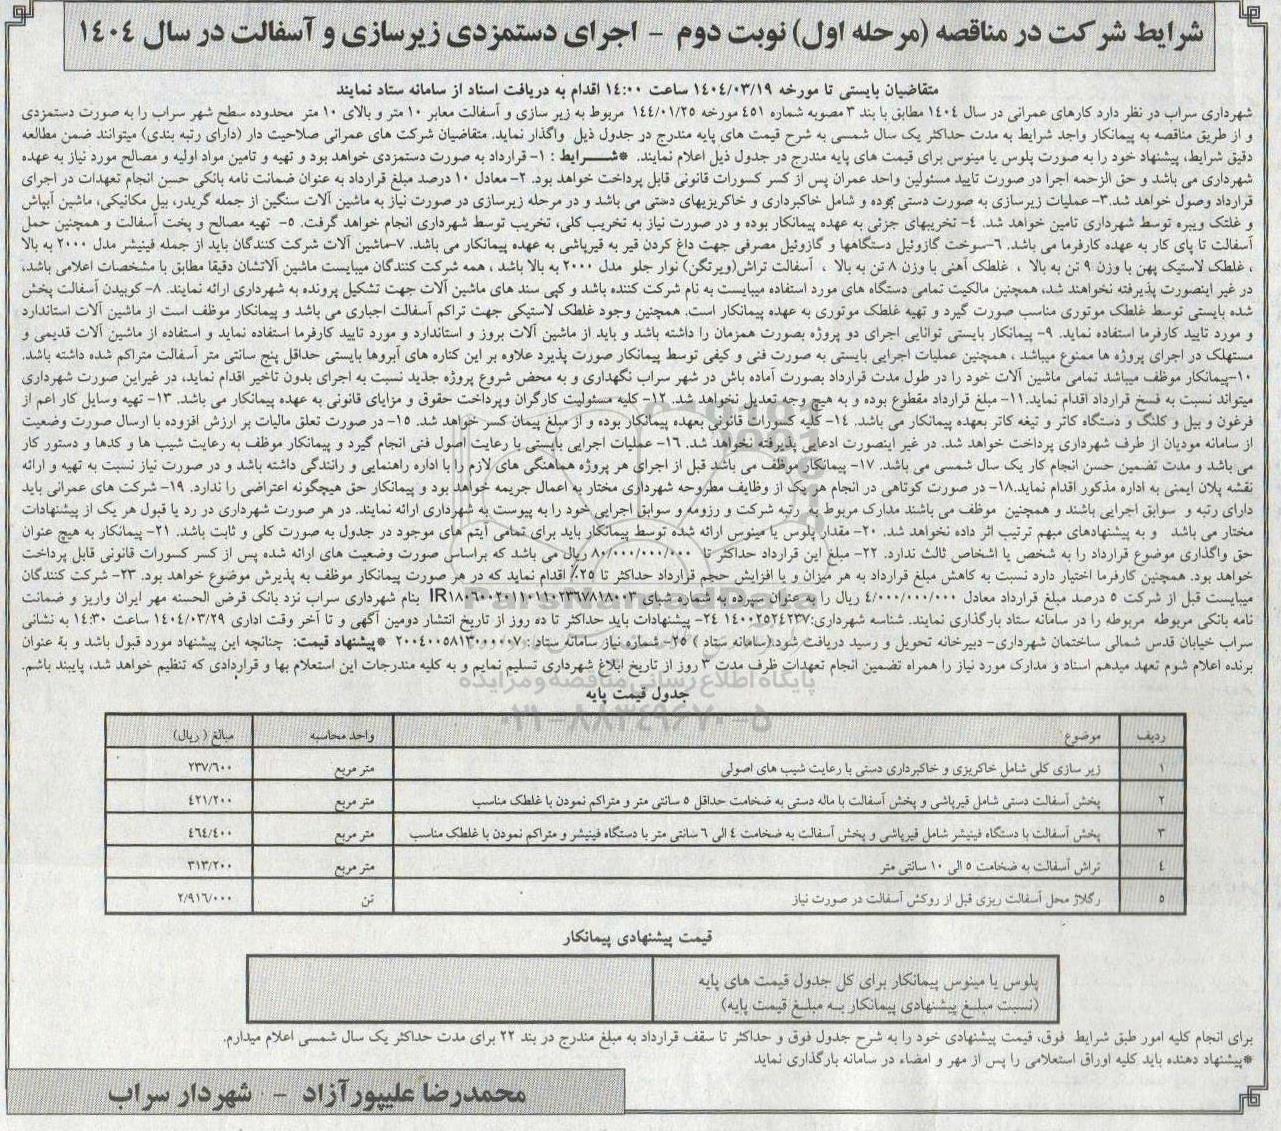 شرایط شرکت در مناقصه (مرحله اول) نوبت دوم - اجرای دستمزدی زیرسازی و آسفالت در سال ۱۴۰۴
متقاضیان بایستی تا مورخه ۱۴۰۴/۰۳/۱۹ ساعت ۱۴:۰۰ اقدام به دریافت اسناد از سامانه ستاد نمایند
شهرداری سراب در نظر دارد کارهای عمرانی در سال ۱۴۰۴ مطابق با بند ۳ مصوبه شماره ۴۵۱ مورخه ۱۴۴/۰۱/۲۵ مربوط به زیر سازی و آسفالت معابر ۱۰ متر و بالای ۱۰ متر محدوده سطح شهر سراب را به صورت دستمزدی
و از طریق مناقصه به پیمانکار واجد شرایط به مدت حداکثر یک سال شمسی به شرح قیمت های پایه مندرج در جدول ذیل واگذار نماید. متقاضیان شرکت های عمرانی صلاحیت دار (دارای رتبه بندی) میتوانند ضمن مطالعه
دقیق شرایط، پیشنهاد خود را به صورت پلوس یا مینوس برای قیمت های پایه مندرج در جدول ذیل اعلام نمایند. *شــرایط : ۱- قرارداد به صورت دستمزدی خواهد بود و تهیه و تامین مواد اولیه و مصالح مورد نیاز به عهده
شهرداری می باشد و حق الزحمه اجرا در صورت تایید مسئولین واحد عمران پس از کسر کسورات قانونی قابل پرداخت خواهد بود. ۲- معادل ۱۰ درصد مبلغ قرارداد به عنوان ضمانت نامه بانکی حسن انجام تعهدات در اجرای
قرارداد وصول خواهد شد.۳- عملیات زیرسازی به صورت دستی بوده و شامل خاکبرداری و خاکریزیهای دستی می باشد و در مرحله زیرسازی در صورت نیاز به ماشین آلات سنگین از جمله گریدر، بیل مکانیکی، ماشین آبپاش
و غلتک ویبره توسط شهرداری تامین خواهد شد. ۴- تخریبهای جزئی به عهده پیمانکار بوده و در صورت نیاز به تخریب کلی، تخریب توسط شهرداری انجام خواهد گرفت. ۵- تهیه مصالح و پخت آسفالت و همچنین حمل
آسفالت تا پای کار به عهده کارفرما می باشد. ۶-سوخت گازوئیل دستگاهها و گازوئیل مصرفی جهت داغ کردن قیر به قیرپاشی به عهده پیمانکار می باشد. ۷-ماشین آلات شرکت کنندگان باید از جمله فینیشر مدل ۲۰۰۰ به بالا
، غلطک لاستیک پهن با وزن ۹ تن به بالا ، غلطک آهنی با وزن ۸ تن به بالا ، آسفالت تراش(ویرتگن) نوار جلو مدل ۲۰۰۰ به بالا باشد ، همه شرکت کنندگان میبایست ماشین آلاتشان دقیقا مطابق با مشخصات اعلامی باشد،
در غیر اینصورت پذیرفته نخواهند شد، همچنین مالکیت تمامی دستگاه های مورد استفاده میبایست به نام شرکت کننده باشد و کپی سند های ماشین آلات جهت تشکیل پرونده به شهرداری ارائه نمایند. ۸- کوبیدن آسفالت پخش
شده بایستی توسط غلطک موتوری مناسب صورت گیرد و تهیه غلطک موتوری به عهده پیمانکار است. همچنین وجود غلطک لاستیکی جهت تراکم آسفالت اجباری می باشد و پیمانکار موظف است از ماشین آلات استاندارد
و مورد تایید کارفرما استفاده نماید. ۹- پیمانکار بایستی توانایی اجرای دو پروژه بصورت همزمان را داشته باشد و باید از ماشین آلات بروز و استاندارد و مورد تایید کارفرما استفاده نماید و استفاده از ماشین آلات قدیمی و
مستهلک در اجرای پروژه ها ممنوع میباشد ، همچنین عملیات اجرایی بایستی به صورت فنی و کیفی توسط پیمانکار صورت پذیرد علاوه بر این کناره های آبروها بایستی حداقل پنج سانتی متر آسفالت متراکم شده داشته باشد.
۱۰-پیمانکار موظف میباشد تمامی ماشین آلات خود را در طول مدت قرارداد بصورت آماده باش در شهر سراب نگهداری و به محض شروع پروژه جدید نسبت به اجرای بدون تاخیر اقدام نماید، در غیراین صورت شهرداری
میتواند نسبت به فسخ قرارداد اقدام نماید.۱۱- مبلغ قرارداد مقطوع بوده و به هیچ وجه تعدیل نخواهد شد. ۱۲- کلیه مسئولیت کارگران وپرداخت حقوق و مزایای قانونی به عهده پیمانکار می باشد. ۱۳- تهیه وسایل کار اعم از
فرغون و بیل و کلنگ و دستگاه کاتر و تیغه کاتر بعهده پیمانکار می باشد. ۱۴- کلیه کسورات قانونی بعهده پیمانکار بوده و از مبلغ پیمان کسر خواهد شد. ۱۵- در صورت تعلق مالیات بر ارزش افزوده با ارسال صورت وضعیت
از سامانه مودیان از طرف شهرداری پرداخت خواهد شد. در غیر اینصورت ادعایی پذیرفته نخواهد شد. ۱۶- عملیات اجرایی بایستی با رعایت اصول فنی انجام گیرد و پیمانکار موظف به رعایت شیب ها و کدها و دستور کار
می باشد و مدت تضمین حسن انجام کار یک سال شمسی می باشد. ۱۷- پیمانکار موظف می باشد قبل از اجرای هر پروژه هماهنگی های لازم را با اداره راهنمایی و رانندگی داشته باشد و در صورت نیاز نسبت به تهیه و ارائه
نقشه پلان ایمنی به اداره مذکور اقدام نماید.۱۸- در صورت کوتاهی در انجام هر یک از وظایف مطروحه شهرداری مختار به اعمال جریمه خواهد بود و پیمانکار حق هیچگونه اعتراضی را ندارد. ۱۹- شرکت های عمرانی باید
دارای رتبه و سوابق اجرایی باشند و همچنین موظف می باشند مدارک مربوط به رتبه شرکت و رزومه و سوابق اجرایی خود را به پیوست به شهرداری ارائه نمایند. در هر صورت شهرداری در رد یا قبول هر یک از پیشنهادات
مختار می باشد و به پیشنهادهای مبهم ترتیب اثر داده نخواهد شد. ۲۰- مقدار پلوس یا مینوس ارائه شده توسط پیمانکار باید برای تمامی آیتم های موجود در جدول به صورت کلی و ثابت باشد. ۲۱- پیمانکار به هیچ عنوان
حق واگذاری موضوع قرارداد را به شخص یا اشخاص ثالث ندارد. ۲۲- مبلغ این قرارداد حداکثر تا ۸۰/۰۰۰/۰۰۰/۰۰۰ ریال می باشد که براساس صورت وضعیت های ارائه شده پس از کسر کسورات قانونی قابل پرداخت
خواهد بود. همچنین کارفرما اختیار دارد نسبت به کاهش مبلغ قرارداد به هر میزان و یا افزایش حجم قرارداد حداکثر تا ۲۵٪ اقدام نماید که در هر صورت پیمانکار موظف به پذیرش موضوع خواهد بود. ۲۳- شرکت کنندگان
میبایست قبل از شرکت ۵ درصد مبلغ قرارداد معادل ۴/۰۰۰/۰۰۰/۰۰۰ ریال را به عنوان سپرده به شماره شبای IR۱۸۰۶۰۰۲۰۱۱۰۱۱۰۲۳۶۷۸۱۸۰۰۳ بنام شهرداری سراب نزد بانک قرض الحسنه مهر ایران واریز و ضمانت
نامه بانکی مربوطه مربوطه را در سامانه ستاد بارگذاری نمایند. شناسه شهرداری:۱۴۰۰۲۵۲۴۲۳۷ ۲۴- پیشنهادات باید حداکثر تا ده روز از تاریخ انتشار دومین آگهی و تا آخر وقت اداری ۱۴۰۴/۰۳/۲۹ ساعت ۱۴:۳۰ به نشانی
سراب خیابان قدس شمالی ساختمان شهرداری- دبیرخانه تحویل و رسید دریافت شود.(سامانه ستاد ) ۲۵- شماره نیاز سامانه ستاد : ۲۰۰۴۰۰۵۸۱۳۰۰۰۰۰۷ *پیشنهاد قیمت: چنانچه این پیشنهاد مورد قبول باشد و به عنوان
برنده اعلام شوم تعهد میدهم اسناد و مدارک مورد نیاز را همراه تضمین انجام تعهدات ظرف مدت ۳ روز از تاریخ ابلاغ شهرداری تسلیم نمایم و به کلیه مندرجات این استعلام بها و قراردادی که تنظیم خواهد شد، پایبند باشم.
ParsNamadData
پایگاه اطلاع رسانی مناقصه و مزایده
۰۲۱-۸۸۳۴۹۶۷۰-۵
جدول قیمت پایه
ردیف موضوع واحد محاسبه مبالغ (ریال)
۱ زیر سازی کلی شامل خاکریزی و خاکبرداری دستی با رعایت شیب های اصولی متر مربع ۲۳۷/۶۰۰
۲ پخش آسفالت دستی شامل قیرپاشی و پخش آسفالت با ماله دستی به ضخامت حداقل ۵ سانتی متر و متراکم نمودن با غلطک مناسب متر مربع ۴۲۱/۲۰۰
۳ پخش آسفالت با دستگاه فینیشر شامل قیرپاشی و پخش آسفالت به ضخامت ۴ الی ۶ سانتی متر با دستگاه فینیشر و متراکم نمودن با غلطک مناسب متر مربع ۴۶۴/۴۰۰
۴ تراش آسفالت به ضخامت ۵ الی ۱۰ سانتی متر متر مربع ۳۱۳/۲۰۰
۵ رگلاژ محل آسفالت ریزی قبل از روکش آسفالت در صورت نیاز تن ۲/۹۱۶/۰۰۰
قیمت پیشنهادی پیمانکار
پلوس یا مینوس پیمانکار برای کل جدول قیمت های پایه
(نسبت مبلغ پیشنهادی پیمانکار به مبلغ قیمت پایه)
برای انجام کلیه امور طبق شرایط فوق، قیمت پیشنهادی خود را به شرح جدول فوق و حداکثر تا سقف قرارداد به مبلغ مندرج در بند ۲۲ برای مدت حداکثر یک سال شمسی اعلام میدارم.
*پیشنهاد دهنده باید کلیه اوراق استعلامی را پس از مهر و امضاء در سامانه بارگذاری نماید
محمدرضا علیپورآزاد - شهردار سراب